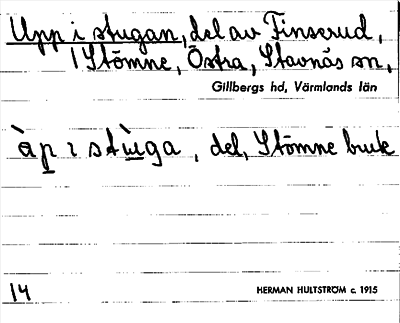 Upp i stugan, del av Finserud,
1 Stömne, Östra, Stavnäs sn,
Gillbergs hd, Värmlands län
àp ı stùga, del, Stömne bruk
14
HERMAN HULTSTRÖM c. 1915